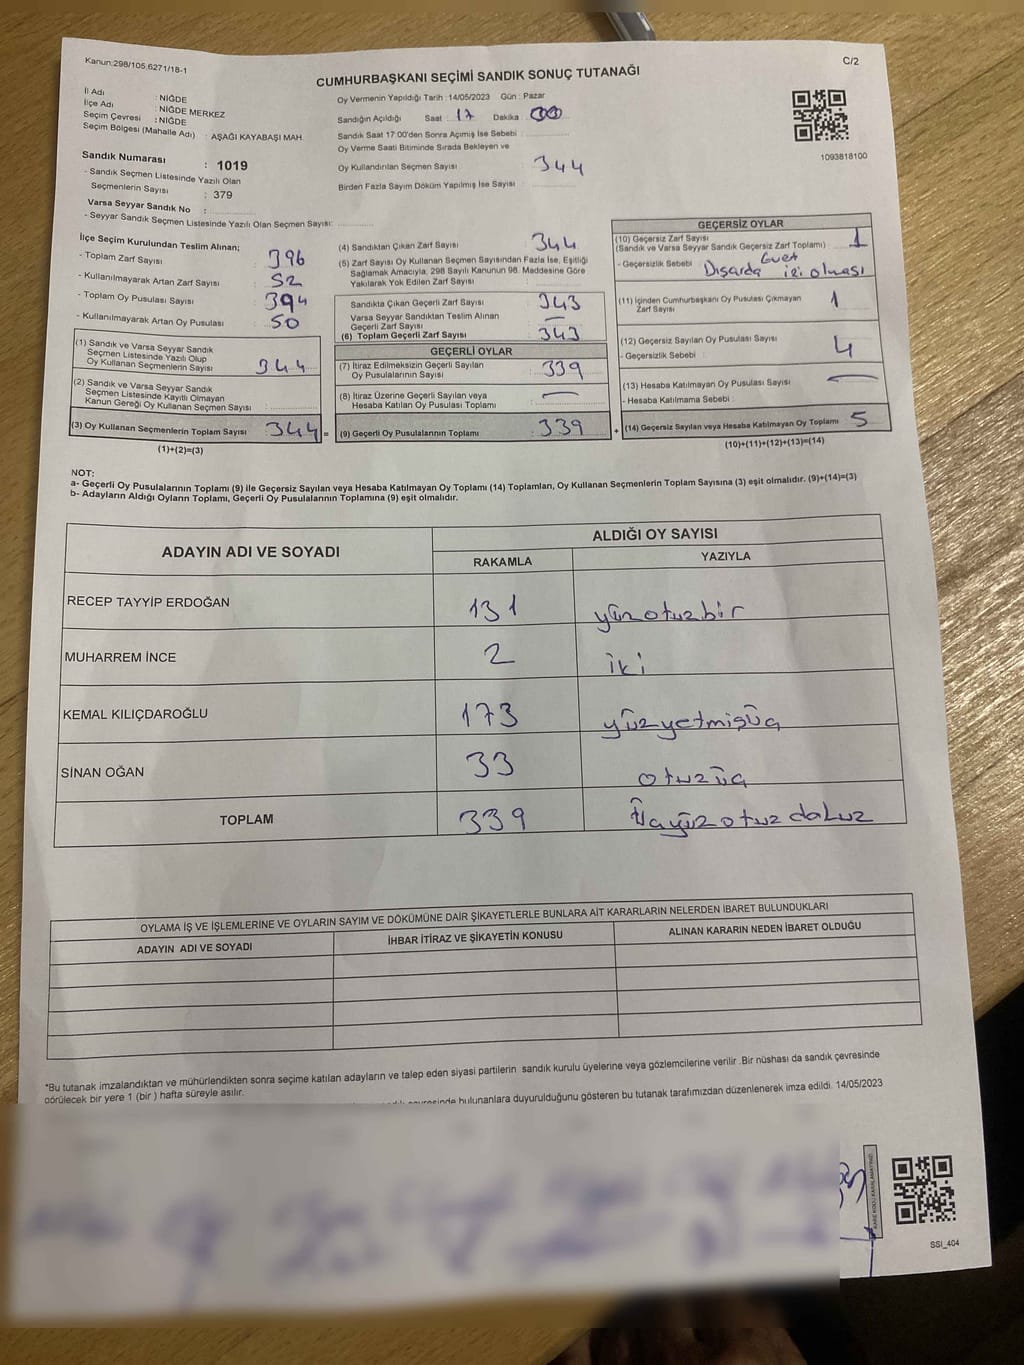 Kanun:298/105,6271/18-1
C/2
CUMHURBAŞKANI SEÇİMİ SANDIK SONUÇ TUTANAĞI
İl Adı : NİĞDE
İlçe Adı : NİĞDE MERKEZ
Seçim Çevresi : NİĞDE
Seçim Bölgesi (Mahalle Adı) : AŞAĞI KAYABAŞI MAH.
Sandık Numarası : 1019
- Sandık Seçmen Listesinde Yazılı Olan
Seçmenlerin Sayısı : 379
Varsa Seyyar Sandık No :
- Seyyar Sandık Seçmen Listesinde Yazılı Olan Seçmen Sayısı:
Oy Vermenin Yapıldığı Tarih : 14/05/2023 Gün : Pazar
Sandığın Açıldığı Saat : 17 Dakika : 00
Sandık Saat 17:00'den Sonra Açımış İse Sebebi :
Oy Verme Saati Bitiminde Sırada Bekleyen ve
Oy Kullandırılan Seçmen Sayısı : 344
Birden Fazla Sayım Döküm Yapılmış İse Sayısı :
1093818100
İlçe Seçim Kurulundan Teslim Alınan;
- Toplam Zarf Sayısı : 396
- Kullanılmayarak Artan Zarf Sayısı : 52
- Toplam Oy Pusulası Sayısı : 394
- Kullanılmayarak Artan Oy Pusulası : 50
(1) Sandık ve Varsa Seyyar Sandık
Seçmen Listesinde Yazılı Olup
Oy Kullanan Seçmenlerin Sayısı : 344
(2) Sandık ve Varsa Seyyar Sandık
Seçmen Listesinde Kayıtlı Olmayan
Kanun Gereği Oy Kullanan Seçmen Sayısı :
(3) Oy Kullanan Seçmenlerin Toplam Sayısı : 344 =
(1)+(2)=(3)
(4) Sandıktan Çıkan Zarf Sayısı : 344
(5) Zarf Sayısı Oy Kullanan Seçmen Sayısından Fazla İse, Eşitliği
Sağlamak Amacıyla, 298 Sayılı Kanunun 98. Maddesine Göre
Yakılarak Yok Edilen Zarf Sayısı :
Sandıkta Çıkan Geçerli Zarf Sayısı : 343
Varsa Seyyar Sandıktan Teslim Alınan
Geçerli Zarf Sayısı : —
(6) Toplam Geçerli Zarf Sayısı : 343
GEÇERLİ OYLAR
(7) İtiraz Edilmeksizin Geçerli Sayılan
Oy Pusulalarının Sayısı : 339
(8) İtiraz Üzerine Geçerli Sayılan veya
Hesaba Katılan Oy Pusulası Toplamı : —
(9) Geçerli Oy Pusulalarının Toplamı : 339 +
GEÇERSİZ OYLAR
(10) Geçersiz Zarf Sayısı
(Sandık ve Varsa Seyyar Sandık Geçersiz Zarf Toplamı) : 1
- Geçersizlik Sebebi : Evet
Dışarda izi olması
(11) İçinden Cumhurbaşkanı Oy Pusulası Çıkmayan
Zarf Sayısı : 1
(12) Geçersiz Sayılan Oy Pusulası Sayısı : 4
- Geçersizlik Sebebi :
(13) Hesaba Katılmayan Oy Pusulası Sayısı : —
- Hesaba Katılmama Sebebi :
(14) Geçersiz Sayılan veya Hesaba Katılmayan Oy Toplamı : 5
(10)+(11)+(12)+(13)=(14)
NOT:
a- Geçerli Oy Pusulalarının Toplamı (9) ile Geçersiz Sayılan veya Hesaba Katılmayan Oy Toplamı (14) Toplamları, Oy Kullanan Seçmenlerin Toplam Sayısına (3) eşit olmalıdır. (9)+(14)=(3)
b- Adayların Aldığı Oyların Toplamı, Geçerli Oy Pusulalarının Toplamına (9) eşit olmalıdır.
ADAYIN ADI VE SOYADI
ALDIĞI OY SAYISI
RAKAMLA YAZIYLA
RECEP TAYYİP ERDOĞAN 131 yüzotuzbir
MUHARREM İNCE 2 iki
KEMAL KILIÇDAROĞLU 173 yüzyetmişüç
SİNAN OĞAN 33 otuzüç
TOPLAM 339 üçyüzotuzdokuz
OYLAMA İŞ VE İŞLEMLERİNE VE OYLARIN SAYIM VE DÖKÜMÜNE DAİR ŞİKAYETLERLE BUNLARA AİT KARARLARIN NELERDEN İBARET BULUNDUKLARI
ADAYIN ADI VE SOYADI İHBAR İTİRAZ VE ŞİKAYETİN KONUSU ALINAN KARARIN NEDEN İBARET OLDUĞU
*Bu tutanak imzalandıktan ve mühürlendikten sonra seçime katılan adayların ve talep eden siyasi partilerin sandık kurulu üyelerine veya gözlemcilerine verilir .Bir nüshası da sandık çevresinde
görülecek bir yere 1 (bir ) hafta süreyle asılır.
bulunanlara duyurulduğunu gösteren bu tutanak tarafımızdan düzenlenerek imza edildi. 14/05/2023
SSI_404